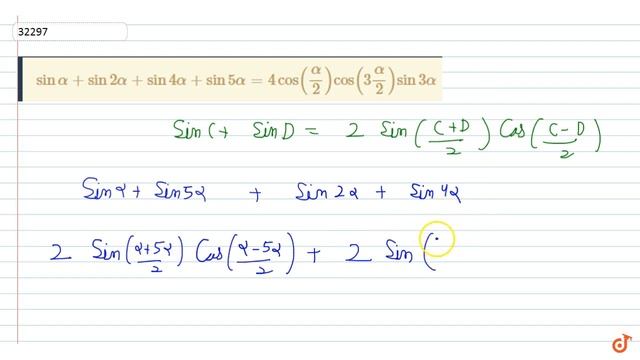 32297
sin α + sin 2α + sin 4α + sin 5α = 4 cos(α/2) cos(3 α/2) sin 3α
Sin C + Sin D = 2 Sin (C+D/2) Cos (C-D/2)
Sin α + Sin 5α + Sin 2α + Sin 4α
2 Sin (α+5α/2) Cos (α-5α/2) + 2 Sin (
doubtnut